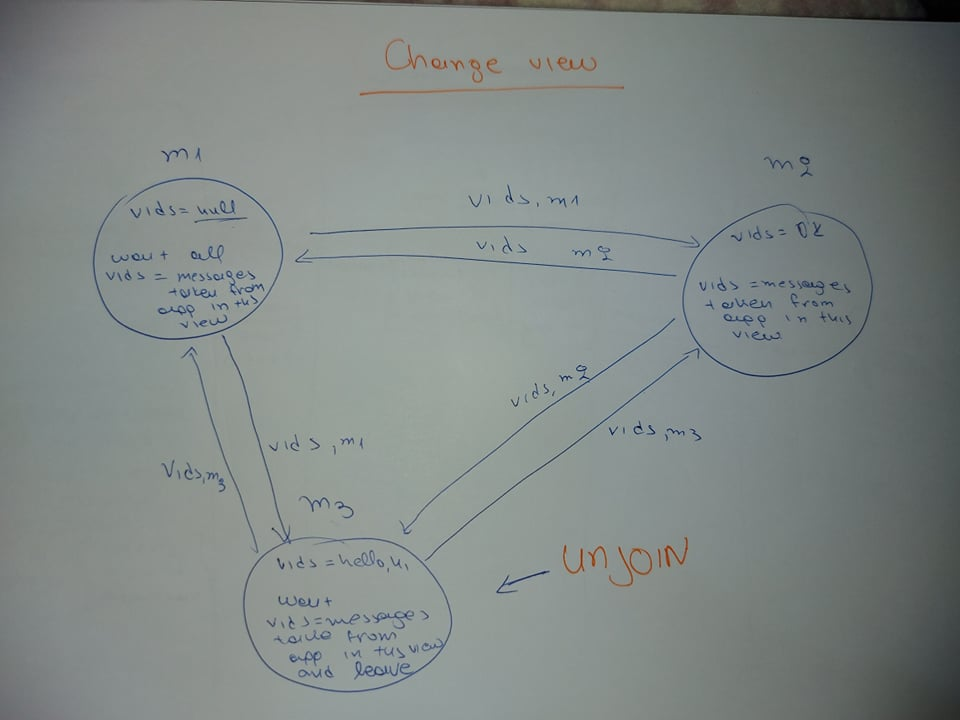 Change view
m1
m2
vids = null
wait all
vids = messages
taken from
app in this
view
vids, m1
vids m2
vids = OK
vids = messages
taken from
app in this
view
vids, m2
vids, m3
vids, m1
Vids, m3
m3
UNJOIN
vids = hello, hi
wait
vids = messages
take from
app in this view
and leave